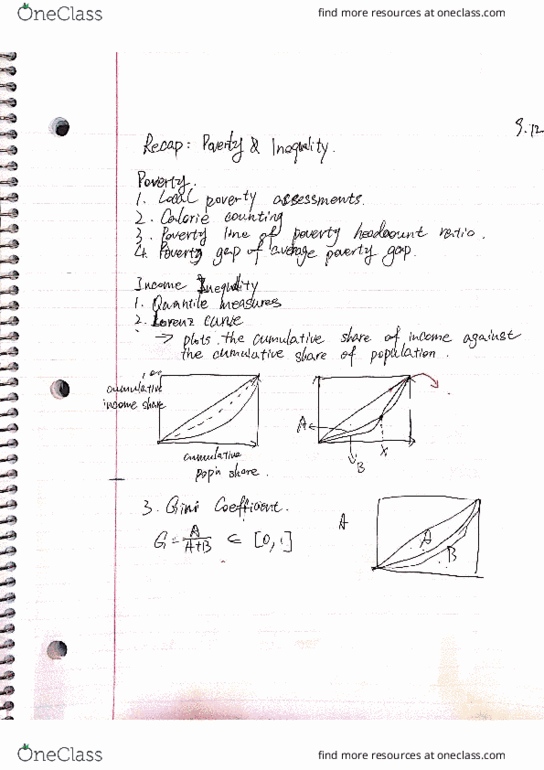 OneClass
find more resources at oneclass.com
9.12
Recap: Poverty & Inequality.
Poverty.
1. Local poverty assessments.
2. Calorie counting
3. Poverty line of poverty headcount ratio.
4. Poverty gap of average poverty gap.
Income Inequality
1. Quantile measures
2. Lorenz curve
→ plots the cumulative share of income against
the cumulative share of population.
cumulative
income share
A
B
X
cumulative
pop'n share.
3. Gini Coefficient.
G = A/A+B ⊂ [0,1]
A
A
B
OneClass
find more resources at oneclass.com